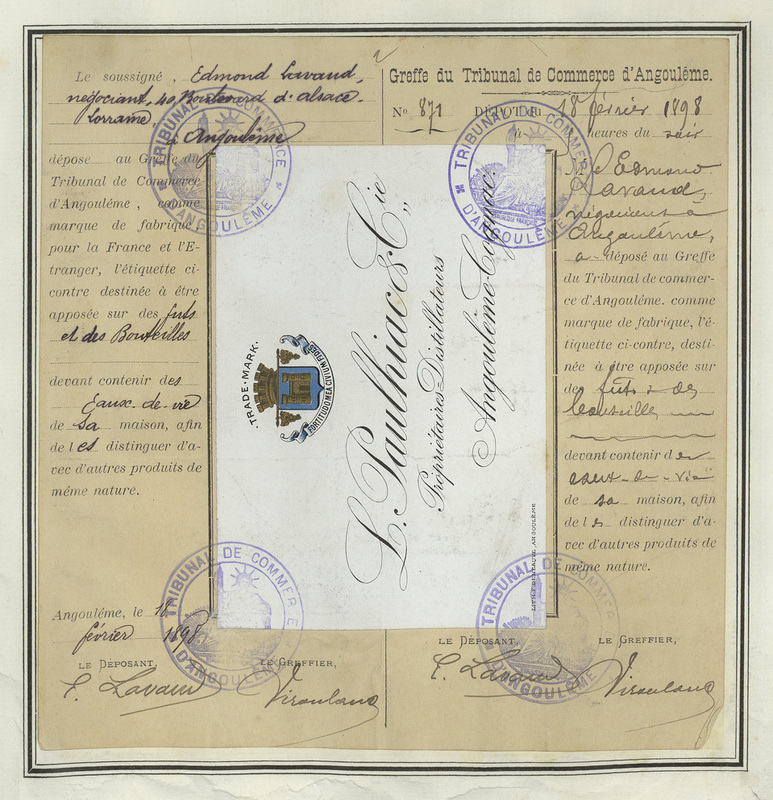 Le soussigné, Edmond Lavaud,
négociant, 40 Boulevard d'Alsace-
Lorraine
à Angoulême
dépose au Greffe du
Tribunal de Commerce
d'Angoulême, comme
marque de fabrique,
pour la France et l'E-
tranger, l'étiquette ci-
contre destinée à être
apposée sur des futs
et des Bouteilles
devant contenir des
Eaux-de-vie
de sa maison, afin
de les distinguer d'a-
vec d'autres produits de
même nature.
Angoulême, le 18
février 1898
LE DÉPOSANT,
LE GREFFIER,
E. Lavaud
Greffe du Tribunal de Commerce d'Angoulême.
No 871 DÉPÔT du 18 février 1898
à heures du soir
M. Edmond
Lavaud,
négociant à
Angoulême,
a déposé au Greffe
du Tribunal de commer-
ce d'Angoulême, comme
marque de fabrique, l'é-
tiquette ci-contre, desti-
née à être apposée sur
des futs & des
bouteilles
devant contenir des
eaux-de-vie
de sa maison, afin
de les distinguer d'a-
vec d'autres produits de
même nature.
LE DÉPOSANT,
LE GREFFIER,
E. Lavaud
TRADE-MARK.
FORTITUDO MEA CIVIUM FIDES
L. Paulhiac & Cie
Propriétaires-Distillateurs
Angoulême-Cognac.
TRIBUNAL DE COMMERCE
D'ANGOULÊME
TRIBUNAL DE COMMERCE
D'ANGOULÊME
TRIBUNAL DE COMMERCE
D'ANGOULÊME
TRIBUNAL DE COMMERCE
D'ANGOULÊME